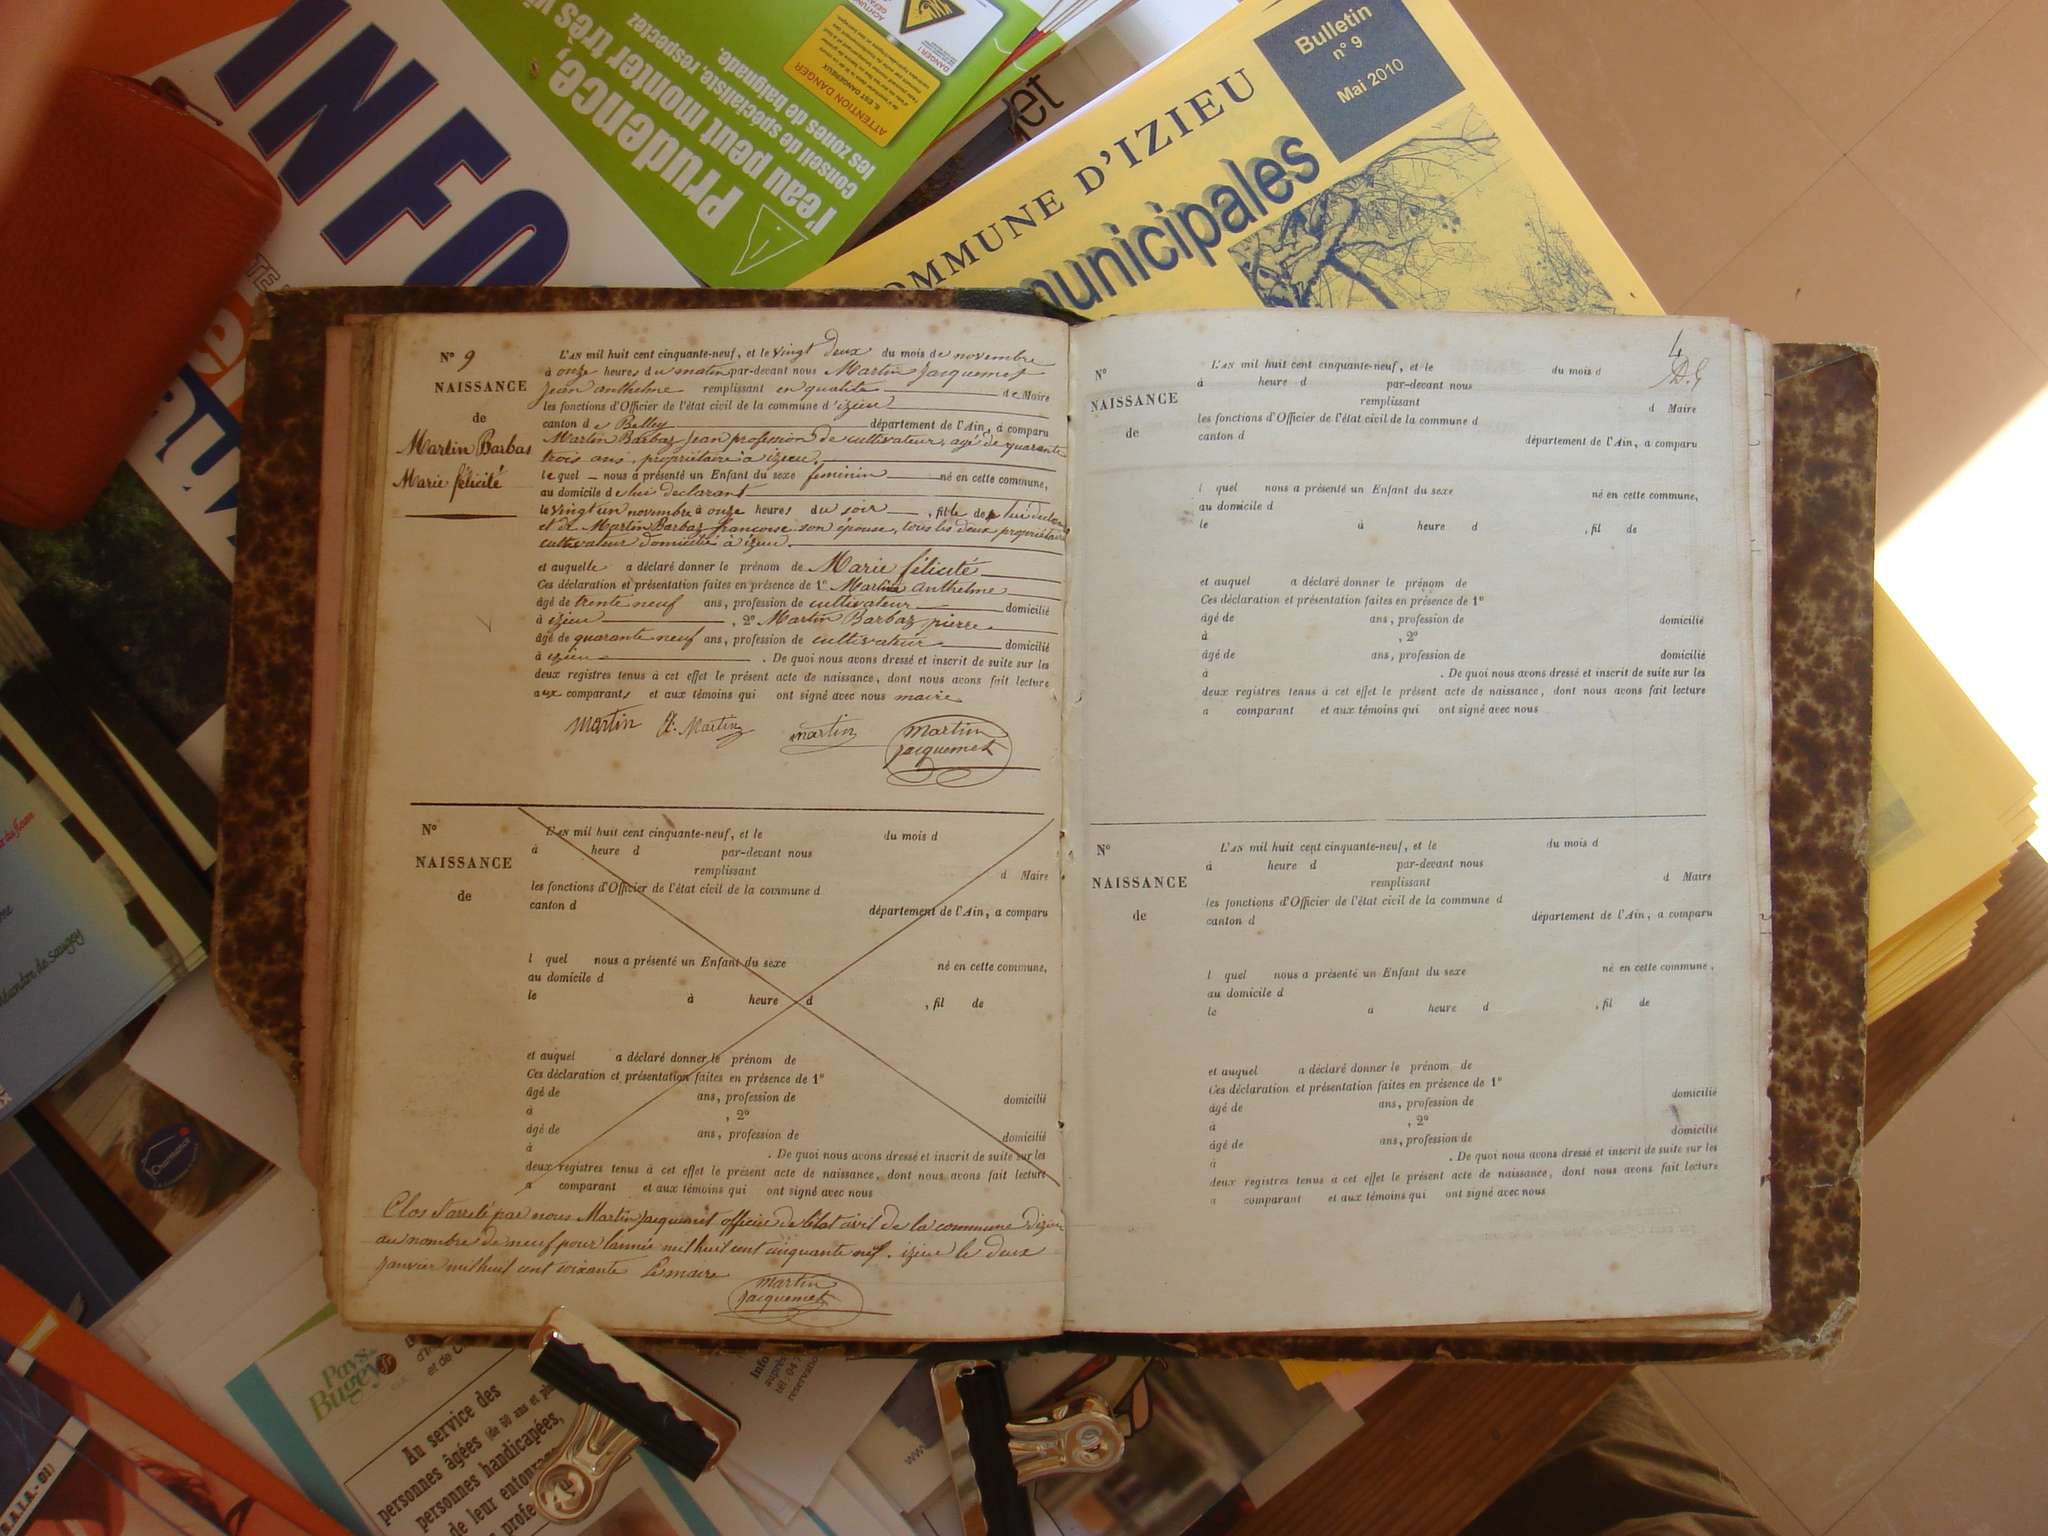 INFO
Prudence,
l'eau peut monter très vi
conseil de spécialiste, respectez
les zones de baignade.
ATTENTION DANGER
DANGER !
COMMUNE D'IZIEU
municipales
Bulletin
n° 9
Mai 2010
N° 9
NAISSANCE
de
Martin Barbas
Marie félicité
L'AN mil huit cent cinquante-neuf, et le vingt deux du mois de novembre
à onze heures du matin par-devant nous Martin Jacquemet
Jean anthelme remplissant en qualité de Maire
les fonctions d'Officier de l'état civil de la commune d'izieu
canton de Belley département de l'Ain, a comparu
Martin Barbaz Jean profession de cultivateur, agé de quarante
trois ans, propriétaire à izieu.
le quel nous a présenté un Enfant du sexe feminin né en cette commune,
au domicile de lui declarant
le vingt un novembre à onze heures du soir, fille de lui
et de Martin Barbaz françoise son épouse, tous les deux propriétaire
cultivateur domicilié à izieu.
et auquelle a déclaré donner le prénom de Marie félicité
Ces déclaration et présentation faites en présence de 1° Martin anthelme
âgé de trente neuf ans, profession de cultivateur domicilié
à izieu, 2° Martin Barbaz pierre
âgé de quarante neuf ans, profession de cultivateur domicilié
à izieu. De quoi nous avons dressé et inscrit de suite sur les
deux registres tenus à cet effet le présent acte de naissance, dont nous avons fait lecture
aux comparants et aux témoins qui ont signé avec nous maire
Martin A. Martin martin Martin
Jacquemet
N°
NAISSANCE
de
L'AN mil huit cent cinquante-neuf, et le du mois d
à heure d par-devant nous
remplissant d Maire
les fonctions d'Officier de l'état civil de la commune d
canton d département de l'Ain, a comparu
l quel nous a présenté un Enfant du sexe né en cette commune,
au domicile d
le à heure d , fil de
et auquel a déclaré donner le prénom de
Ces déclaration et présentation faites en présence de 1°
âgé de ans, profession de domicilié
à , 2°
âgé de ans, profession de domicilié
à . De quoi nous avons dressé et inscrit de suite sur les
deux registres tenus à cet effet le présent acte de naissance, dont nous avons fait lecture
a comparant et aux témoins qui ont signé avec nous
Clos et arrêté par nous Martin Jacquemet officier de l'état civil de la commune d'izieu
au nombre de neuf pour l'année mil huit cent cinquante neuf. izieu le deux
janvier mil huit cent soixante Le maire
Martin
Jacquemet
4
N°
NAISSANCE
de
L'AN mil huit cent cinquante-neuf, et le du mois d
à heure d par-devant nous
remplissant d Maire
les fonctions d'Officier de l'état civil de la commune d
canton d département de l'Ain, a comparu
l quel nous a présenté un Enfant du sexe né en cette commune,
au domicile d
le à heure d , fil de
et auquel a déclaré donner le prénom de
Ces déclaration et présentation faites en présence de 1°
âgé de ans, profession de domicilié
à , 2°
âgé de ans, profession de domicilié
à . De quoi nous avons dressé et inscrit de suite sur les
deux registres tenus à cet effet le présent acte de naissance, dont nous avons fait lecture
a comparant et aux témoins qui ont signé avec nous
N°
NAISSANCE
de
L'AN mil huit cent cinquante-neuf, et le du mois d
à heure d par-devant nous
remplissant d Maire
les fonctions d'Officier de l'état civil de la commune d
canton d département de l'Ain, a comparu
l quel nous a présenté un Enfant du sexe né en cette commune,
au domicile d
le à heure d , fil de
et auquel a déclaré donner le prénom de
Ces déclaration et présentation faites en présence de 1°
âgé de ans, profession de domicilié
à , 2°
âgé de ans, profession de domicilié
à . De quoi nous avons dressé et inscrit de suite sur les
deux registres tenus à cet effet le présent acte de naissance, dont nous avons fait lecture
a comparant et aux témoins qui ont signé avec nous
Pays du
Bugey
Au service des
personnes âgées (de 60 ans et plus
personnes handicapées,
de leur entourage